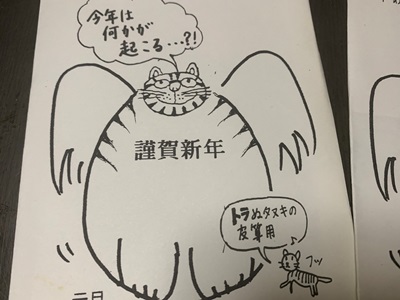 今年は
何かが
起こる…?!
謹賀新年
トラぬタヌキの
皮算用♪
フッ